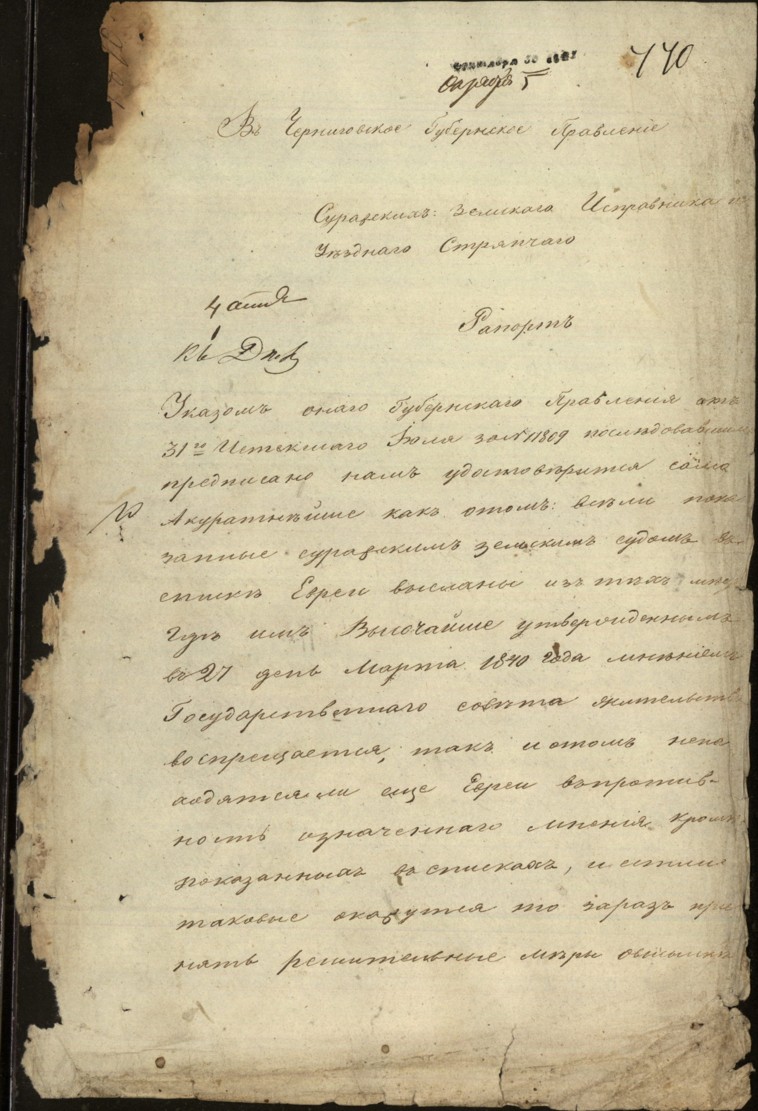 770
Въ Черниговское Губернское Правленіе
Суражскихъ: Земскаго Исправника и
Уѣзднаго Стряпчаго
Рапортъ
Указомъ онаго Губернскаго Правленія отъ
31го Истекшаго Іюля за № 11809 последовавшимъ
предписано намъ удостоверится само
Акуратнѣйше какъ отомъ: всѣли пока
занные суражскимъ земскимъ судомъ въ
спискѣ Евреи высланы изъ тѣхъ мѣс
Гдѣ имъ Высочайше утвержденнымъ
въ 27 день Марта 1840 года мнѣніемъ
Государственнаго совѣта жительств
воспрещается, такъ иотомъ нена
ходятся ли еще Евреи впротив-
ность означеннаго мненія кромѣ
показанныхъ въ спискахъ, и
таковые окажутся то заразъ при
нять решительные мѣры